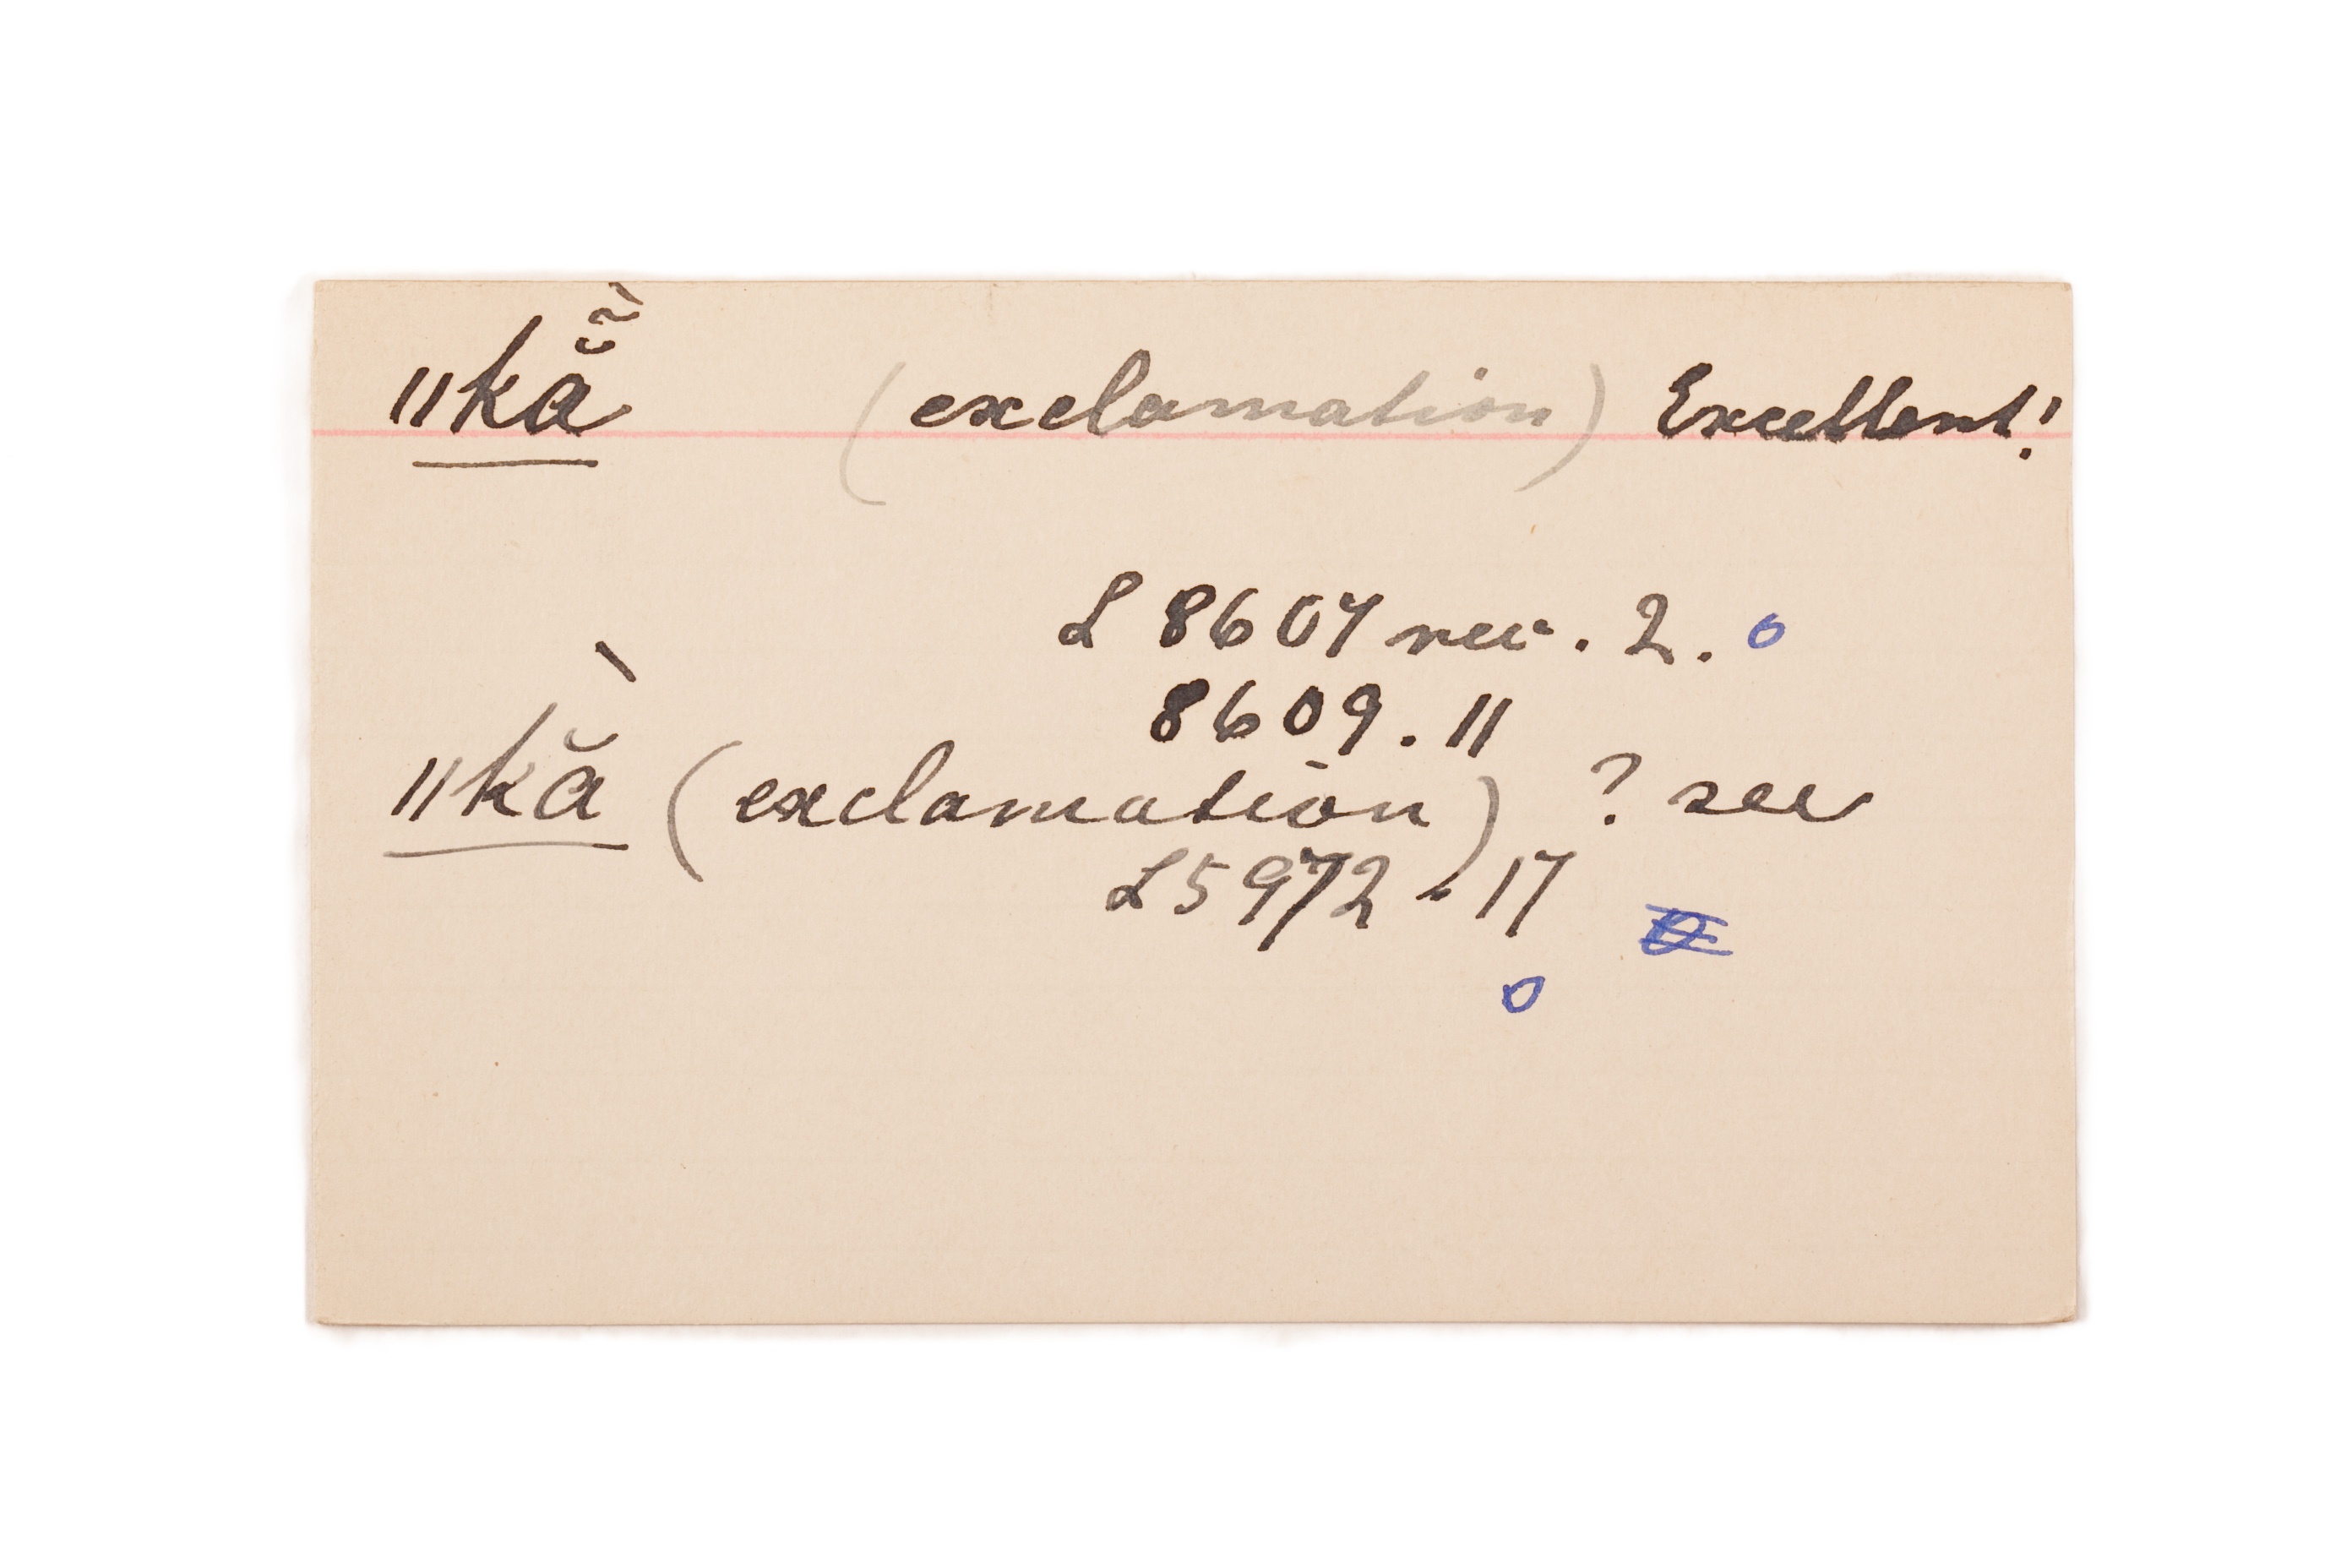 ǁkằ̰ (exclamation) Excellent!
L 8607 rev. 2. o
8609. 11
ǁkằ (exclamation) ? see
L 5972. 17
o